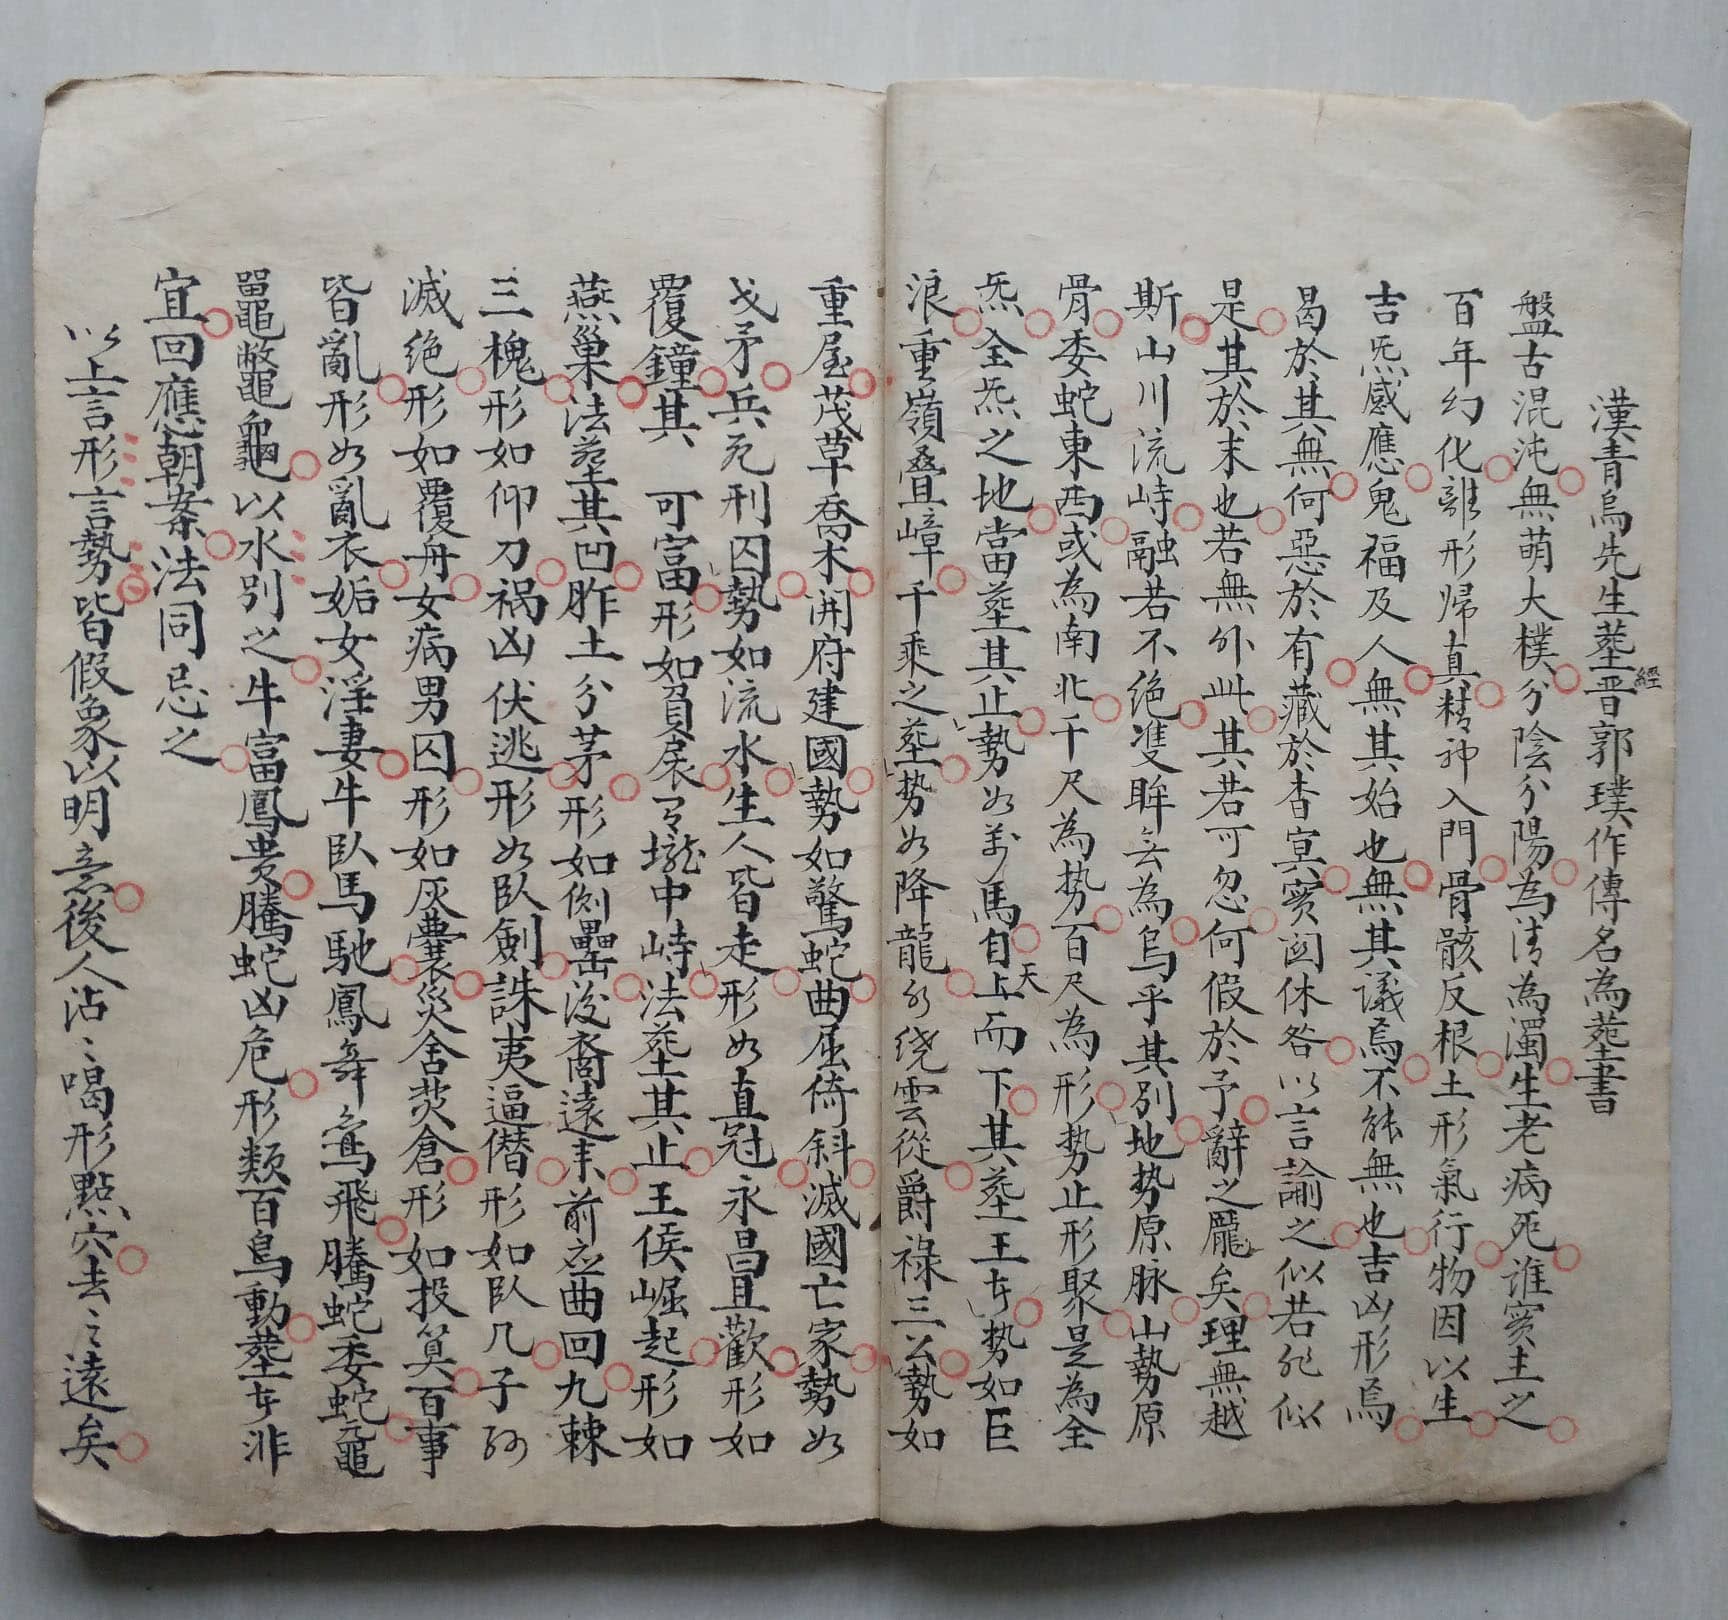 漢青烏先生塟經晋郭璞作傳名為塟書
盤古混沌無萌大樸分陰分陽為清為濁生老病死谁寔主之
百年幻化離形归真精神入門骨骸反根土形氣行物因以生
吉炁感應鬼福及人無其始也無其議焉不能無也吉凶形焉
曷於其無何惡於有藏於杳寞寔囟休咎以言諭之似若非似
是其於末也若無外此其若可忽何假於予辭之厖矣理無越
斯山川流峙融若不絶䨇眸云為烏乎其别地势原脉山勢原
骨委蛇東西或為南北千尺為势百尺為形势止形聚是為全
炁全炁之地當塟其止勢如万馬自天上而下其塟王者势如巨
浪重嶺叠嶂千乘之塟势如降龍水绕雲從爵禄三公勢如
重屋茂草喬木開府建國勢如驚蛇曲屈倚斜滅國亡家勢如
戈矛兵死刑囚勢如流水生人皆走形如真冠永昌且歡形如
覆鐘其 可富形如負扆有壠中峙法塟其止王侯崛起形如
燕巢法塟其凹胙土分茅形如側罍後裔遠来前应曲回九棘
三槐形如仰刀禍凶伏逃形如臥劍誅夷逼僣形如臥几子孫
滅绝形如覆舟女病男囚形如灰囊災舍焚倉形如投筭百事
皆亂形如亂衣妬女淫妻牛臥馬馳鳳舞鸾飛騰蛇委蛇黿
鼉鼈龜以水别之牛富鳳贵騰蛇凶危形類百鳥動塟者非
宜回應朝案法同忌之
以上言形言勢皆假象以明意後人沾〻喝形點穴去之遠矣